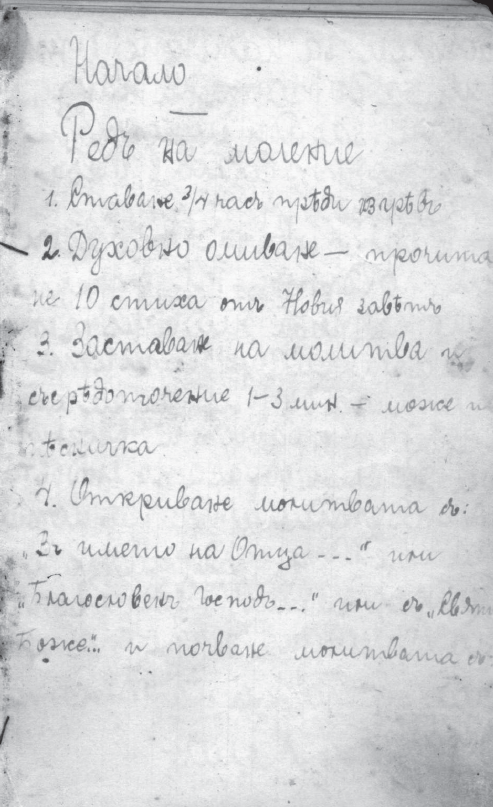 Начало
Редъ на моление
1. Ставане 3/4 часъ прѣди изгрѣвъ
2. Духовно омиване – прочита
не 10 стиха отъ Новия завѣтъ
3. Заставане на молитва и
съсрѣдоточение 1-3 мин. – може и
пѣсничка
4. Откриване молитвата съ:
„Въ името на Отца ---“ или
„Благословенъ Господь---“ или съ „Святи
Боже...“ и почване молитвата съ